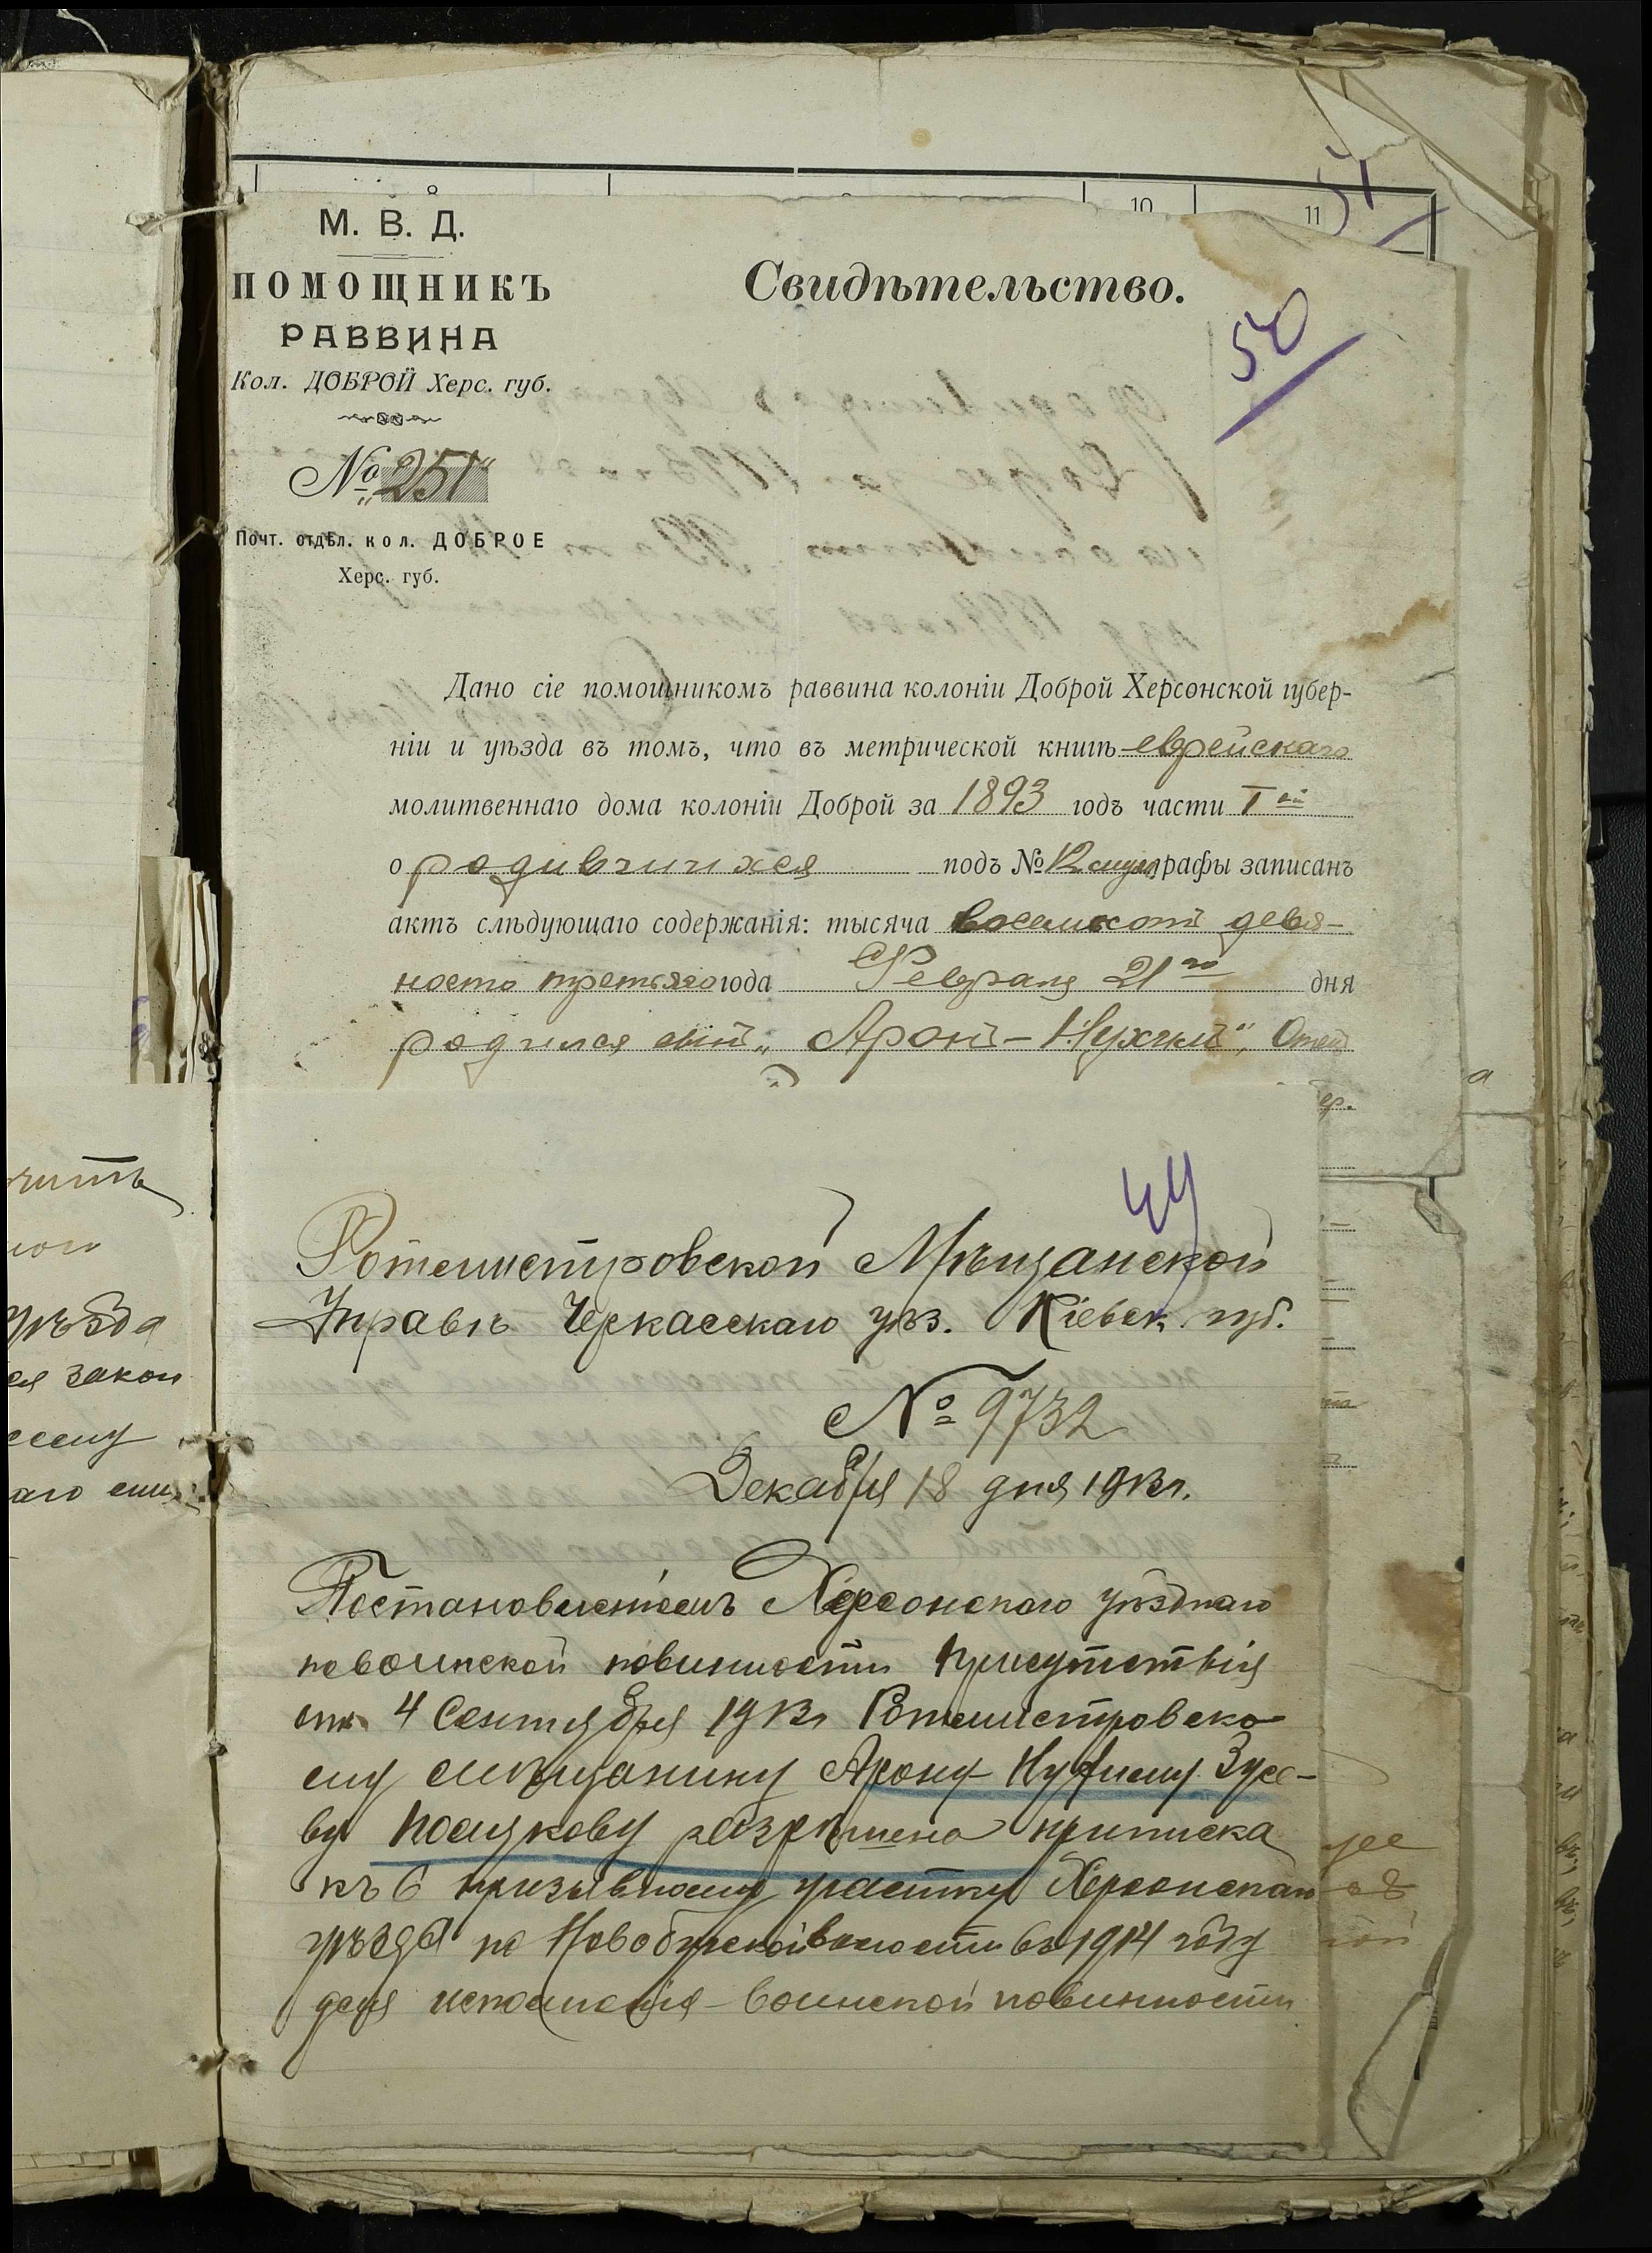 10 11
51
М. В. Д.
ПОМОЩНИКЪ
РАВВИНА
Кол. ДОБРОЙ Херс. губ.
№ „251“
Почт. отдѣл. кол. ДОБРОЕ
Херс. губ.
Свидѣтельство.
50
Дано сіе помощникомъ раввина колоніи Доброй Херсонской губер-
ніи и уѣзда въ томъ, что въ метрической книгѣ еврейскаго
молитвеннаго дома колоніи Доброй за 1893 годъ части Iой
о родившихся подъ № 12 муж графы записанъ
актъ слѣдующаго содержанія: тысяча восемьсотъ девя-
носто третьяго года Февраля 21го дня
родился сынъ „Аронъ-Нухимъ“, Отец
49
Ротмистровской Мѣщанской
Управѣ Черкасскаго уѣз. Кіевск. губ.
№ 9732
Декабря 18 дня 1913г.
Постановленіемъ Херсонскаго уѣзднаго
по воинской повинности Присутствія
отъ 4 Сентября 1913г Ротмистровско-
му мѣщанину Арону-Нухиму Зусе-
ву разрѣшена приписка
къ 6 призывному участку Херсонскаго
уѣзда по Новобугской волости въ 1914 году
для исполненія воинской повинности
уѣзда
ся закон